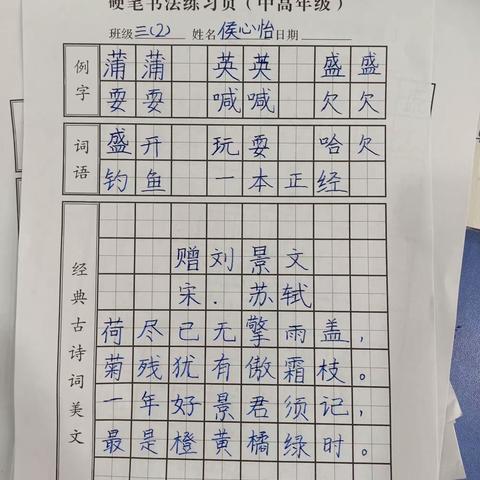 硬笔书法练习页（中高年级）
班级三(2) 姓名侯心怡日期
例字
蒲蒲 英英 盛盛
耍耍 喊喊 欠欠
词语
盛开 玩耍 哈欠
钓鱼 一本正经
经典古诗词美文
赠刘景文
宋．苏轼
荷尽已无擎雨盖，
菊残犹有傲霜枝。
一年好景君须记，
最是橙黄橘绿时。